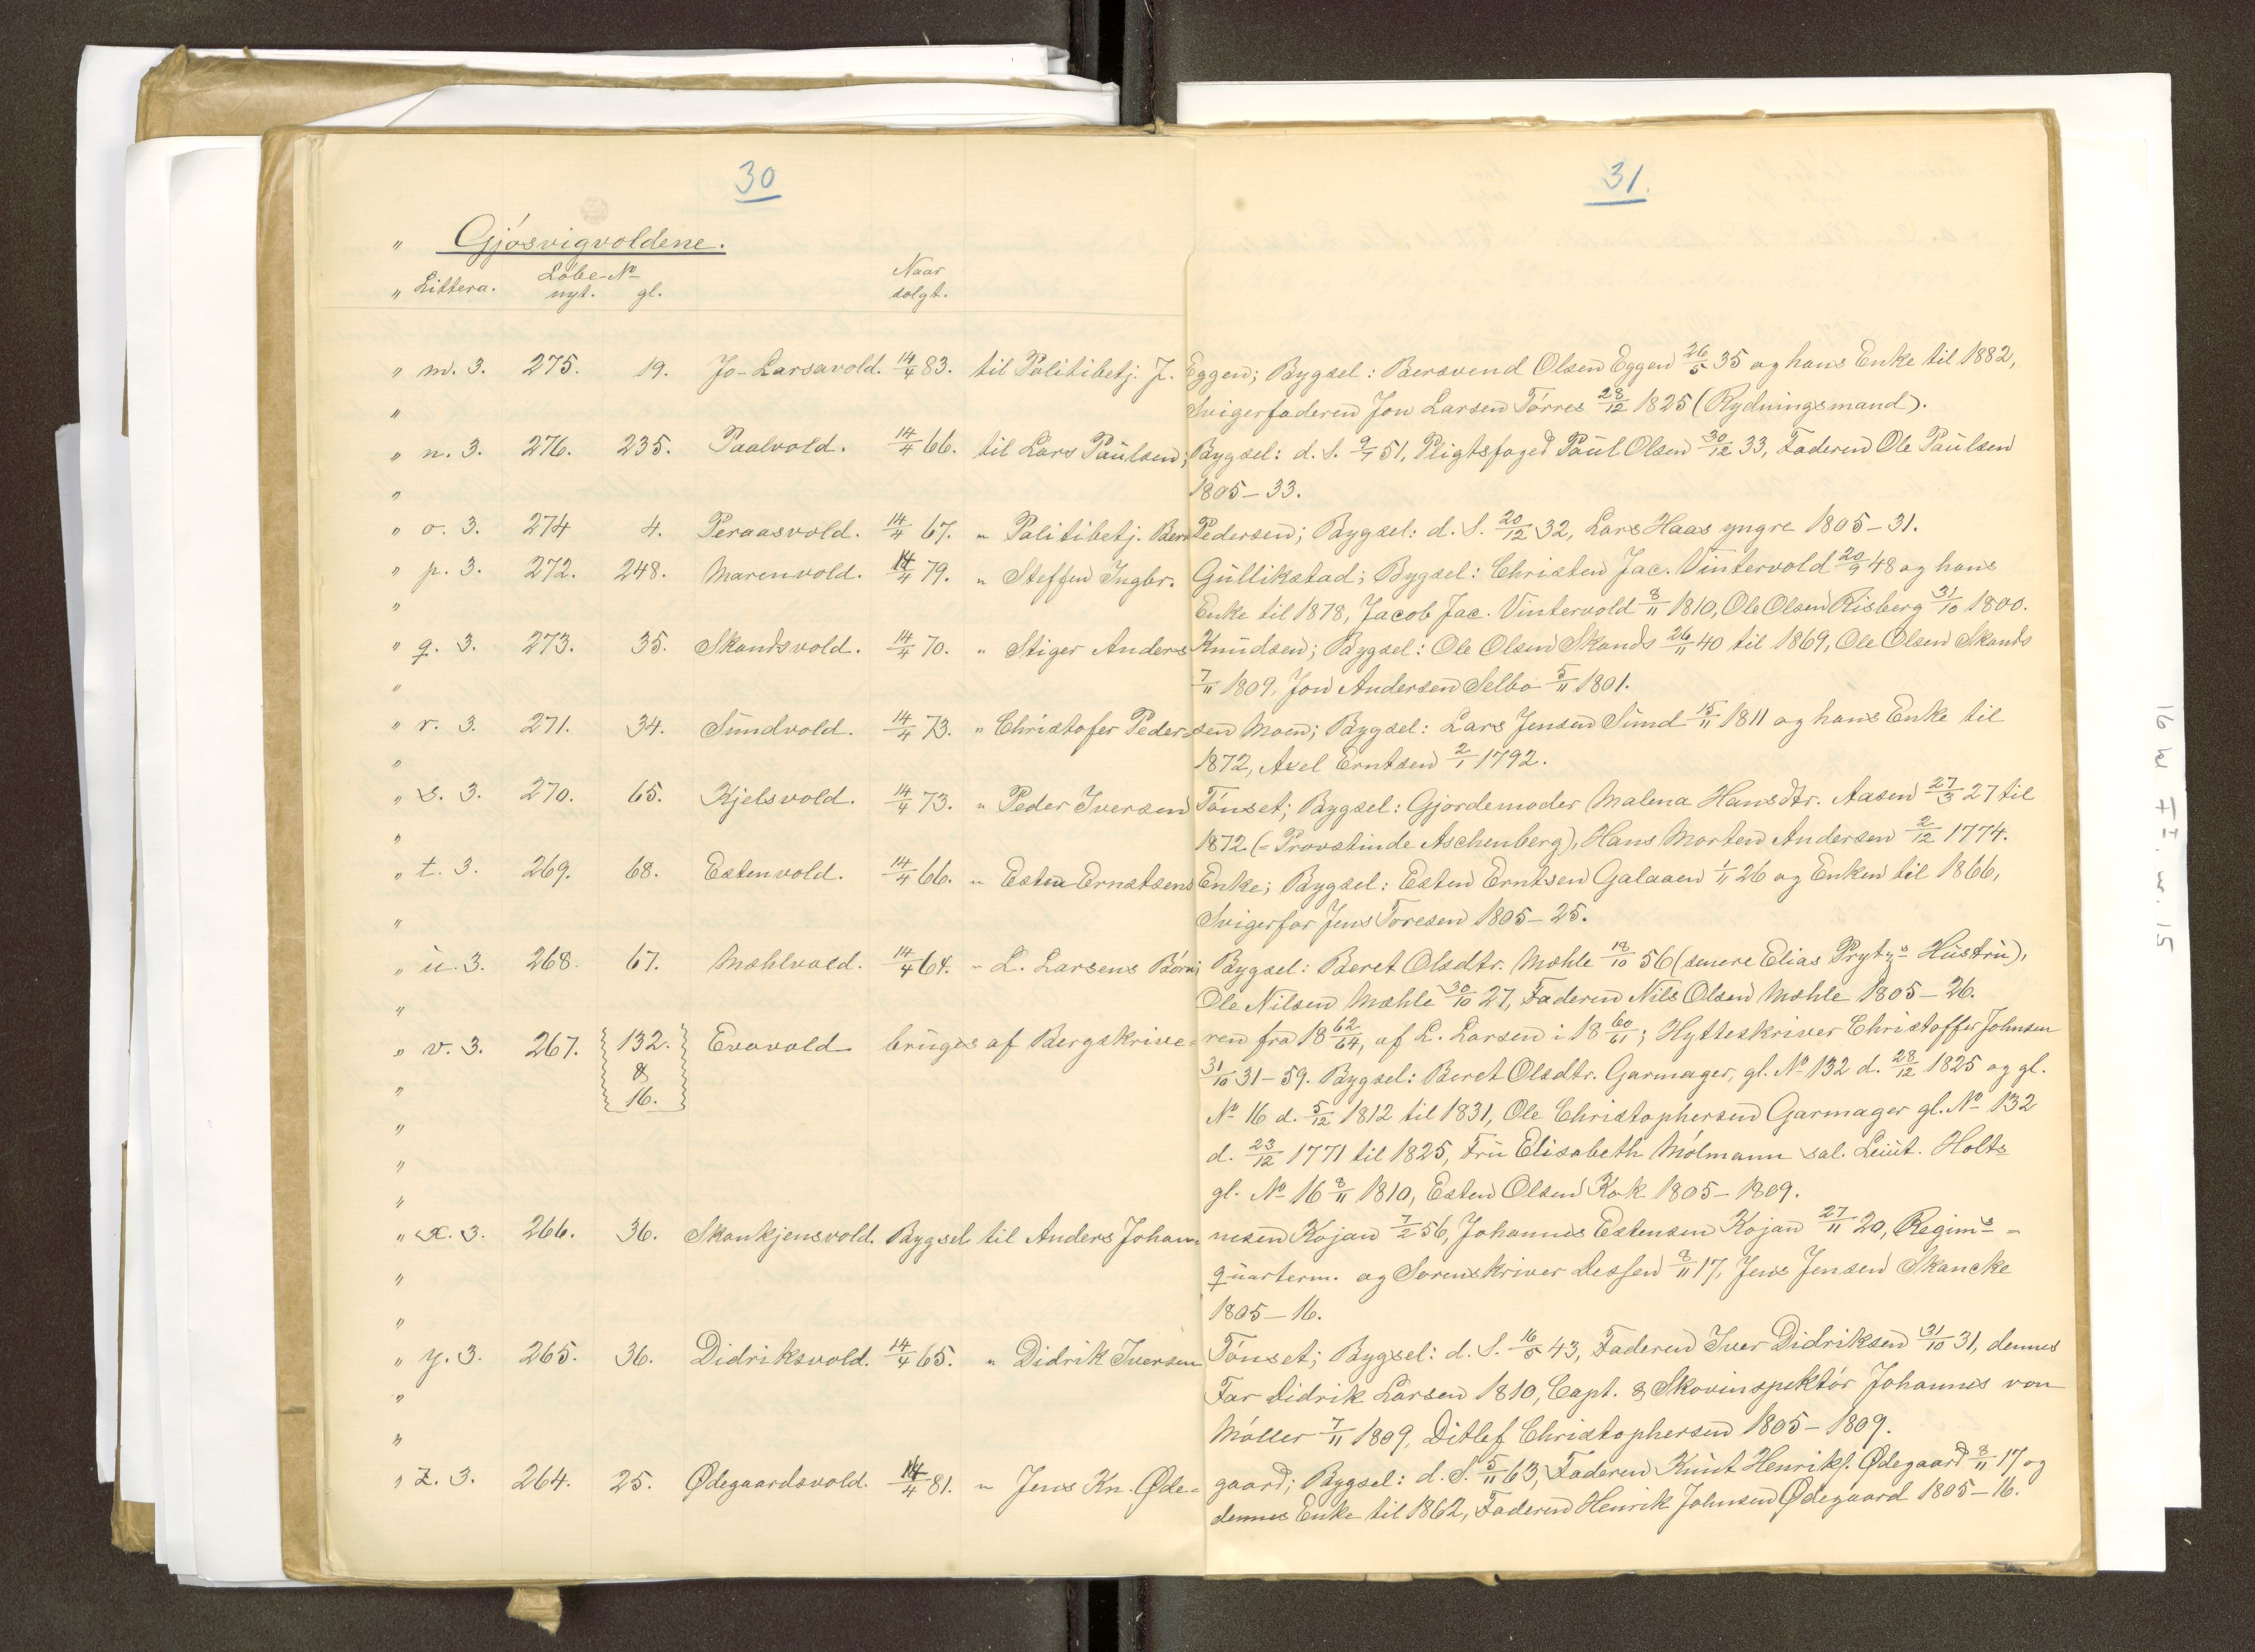 30
31.
" Gjósvigvoldene.
" Littera. Löbe-No nyt. gl. Naar solgt.
" m. 3. 275. 19. Jo-Larsavold. 14/4 83. til Politibetj. J. Eggen; Bygsel: Bersvend Olsen Eggen 26/5 35 og hans Enke til 1882,
" Svigerfaderen Jon Larsen Tórres 28/12 1825 (Rydningsmand).
" n. 3. 276. 235. Paalvold. 14/4 66. til Lars Paulsen; Bygsel: d. S. 9/1 51, Pligtsfoged Paul Olsen 30/12 33, Faderen Ole Paulsen
" 1805–33.
" o. 3. 274 4. Peraasvold. 14/4 67. " Politibetj. Bern Pedersen; Bygsel: d. S. 20/12 32, Lars Haas yngre 1805–31.
" p. 3. 272. 248. Marenvold. 14/4 79. " Steffen Ingbr. Gullikstad; Bygsel: Christen Jac. Vintervold 20/9 48 og hans
" Enke til 1878, Jacob Jac. Vintervold 8/11 1810, Ole Olsen Risberg 31/10 1800.
" q. 3. 273. 35. Skandsvold. 14/4 70. " Stiger Anders Knudsen; Bygsel: Ole Olsen Skands 26/11 40 til 1869, Ole Olsen Skands
" 7/11 1809, Jon Andersen Selbo 5/11 1801.
" r. 3. 271. 34. Sundvold. 14/4 73. " Christofer Peder-sen Moen; Bygsel: Lars Jensen Sund 15/11 1811 og hans Enke til
" 1872, Axel Erntsen 2/1 1792.
" s. 3. 270. 65. Kjelsvold. 14/4 73. " Peder Iversen Tónset; Bygsel: Gjordemoder Malena Hansdtr. Aasen 27/3 27 til
" 1872 (= Provstinde Aschenberg), Hans Morten Andersen 2/12 1774.
" t. 3. 269. 68. Estenvold. 14/4 66. " Esten Ernstsens Enke; Bygsel: Esten Erntsen Galaaen 1/11 26 og Enken til 1866,
" Svigerfar Jens Toresen 1805–25.
" u. 3. 268. 67. Mæhlvold. 14/4 64. " L. Larsens Børn; Bygsel: Beret Olsdtr. Mæhle 18/10 56 (senere Elias Prytzs Hustru),
" Ole Nilsen Mæhle 30/10 27, Faderen Nils Olsen Mæhle 1805–26.
" v. 3. 267. 132. & 16. Evavold bruges af Bergskrive-ren fra 18 62/64, af L. Larsen i 18 60/61; Hytteskriver Christoffer Johnsen
" 31/10 31–59. Bygsel: Beret Olsdtr. Garmager, gl. No 132 d. 28/12 1825 og gl.
" No 16 d. 5/12 1812 til 1831, Ole Christophersen Garmager gl. No 132
" d. 23/12 1771 til 1825, Fru Elisabeth Mólmann sal. Leiut. Holts
" gl. No 16 8/11 1810, Esten Olsen Kok 1805–1809.
" x. 3. 266. 36. Skankjensvold. Bygsel til Anders Johan-nesen Kojan 7/2 56, Johannes Estensen Kojan 27/11 20, Regims-
" quarterm. og Sorenskriver Dessen 8/11 17, Jens Jensen Skancke
" 1805–16.
" y. 3. 265. 36. Didriksvold. 14/4 65. " Didrik Iversen Tónset; Bygsel: d. S. 16/5 43, Faderen Iver Didriksen 31/10 31, dennes
" Far Didrik Larsen 1810, Capt. & Skovinspektór Johannes von
" Móller 7/11 1809, Ditlef Christophersen 1805–1809.
" z. 3. 264. 25. Ødegaardsvold. 14/4 81. " Jens Kn. Øde-gaard; Bygsel: d. S. 5/11 63, Faderen Knut Henriks. Ødegaard 8/11 17 og
dennes Enke til 1862, Faderen Henrik Johnsen Ødegaard 1805–16.